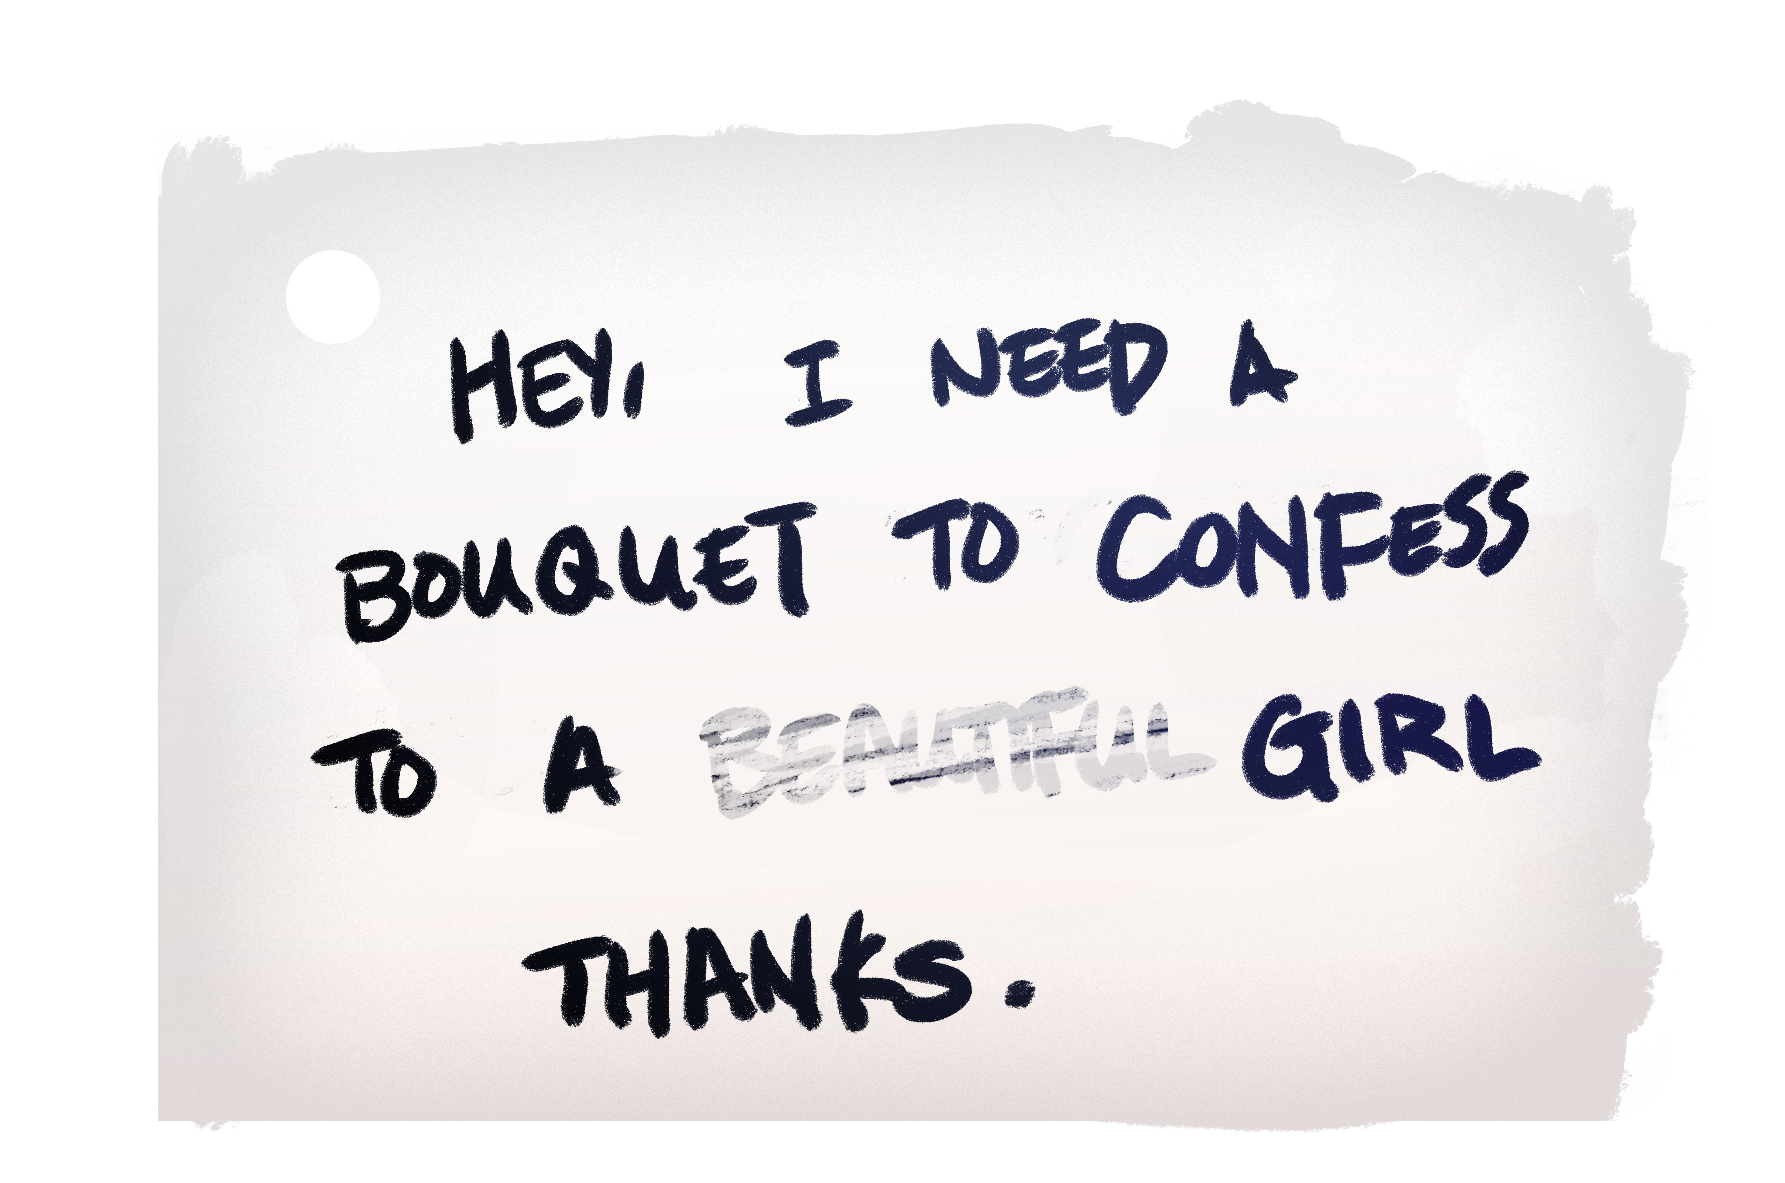 HEY, I NEED A
BOUQUET TO CONFESS
TO A BEAUTIFUL GIRL
THANKS.